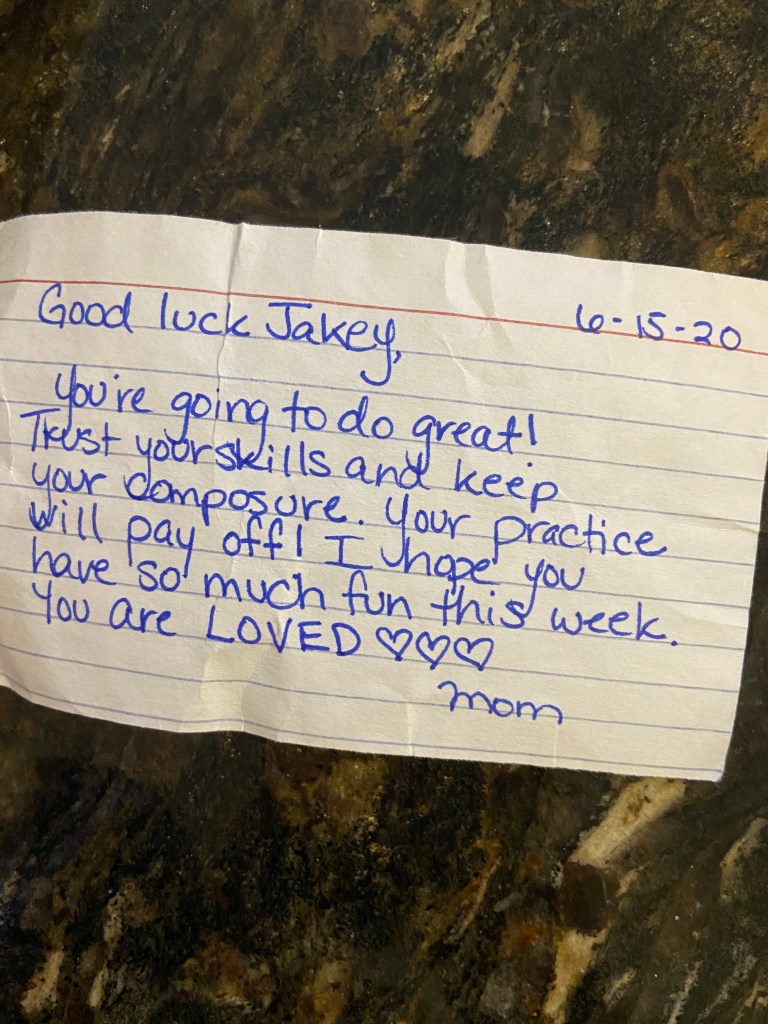 6-15-20
Good luck Jakey,
You're going to do great!
Trust your skills and keep
your composure. Your practice
will pay off! I hope you
have so much fun this week.
You are LOVED ♡♡♡
mom